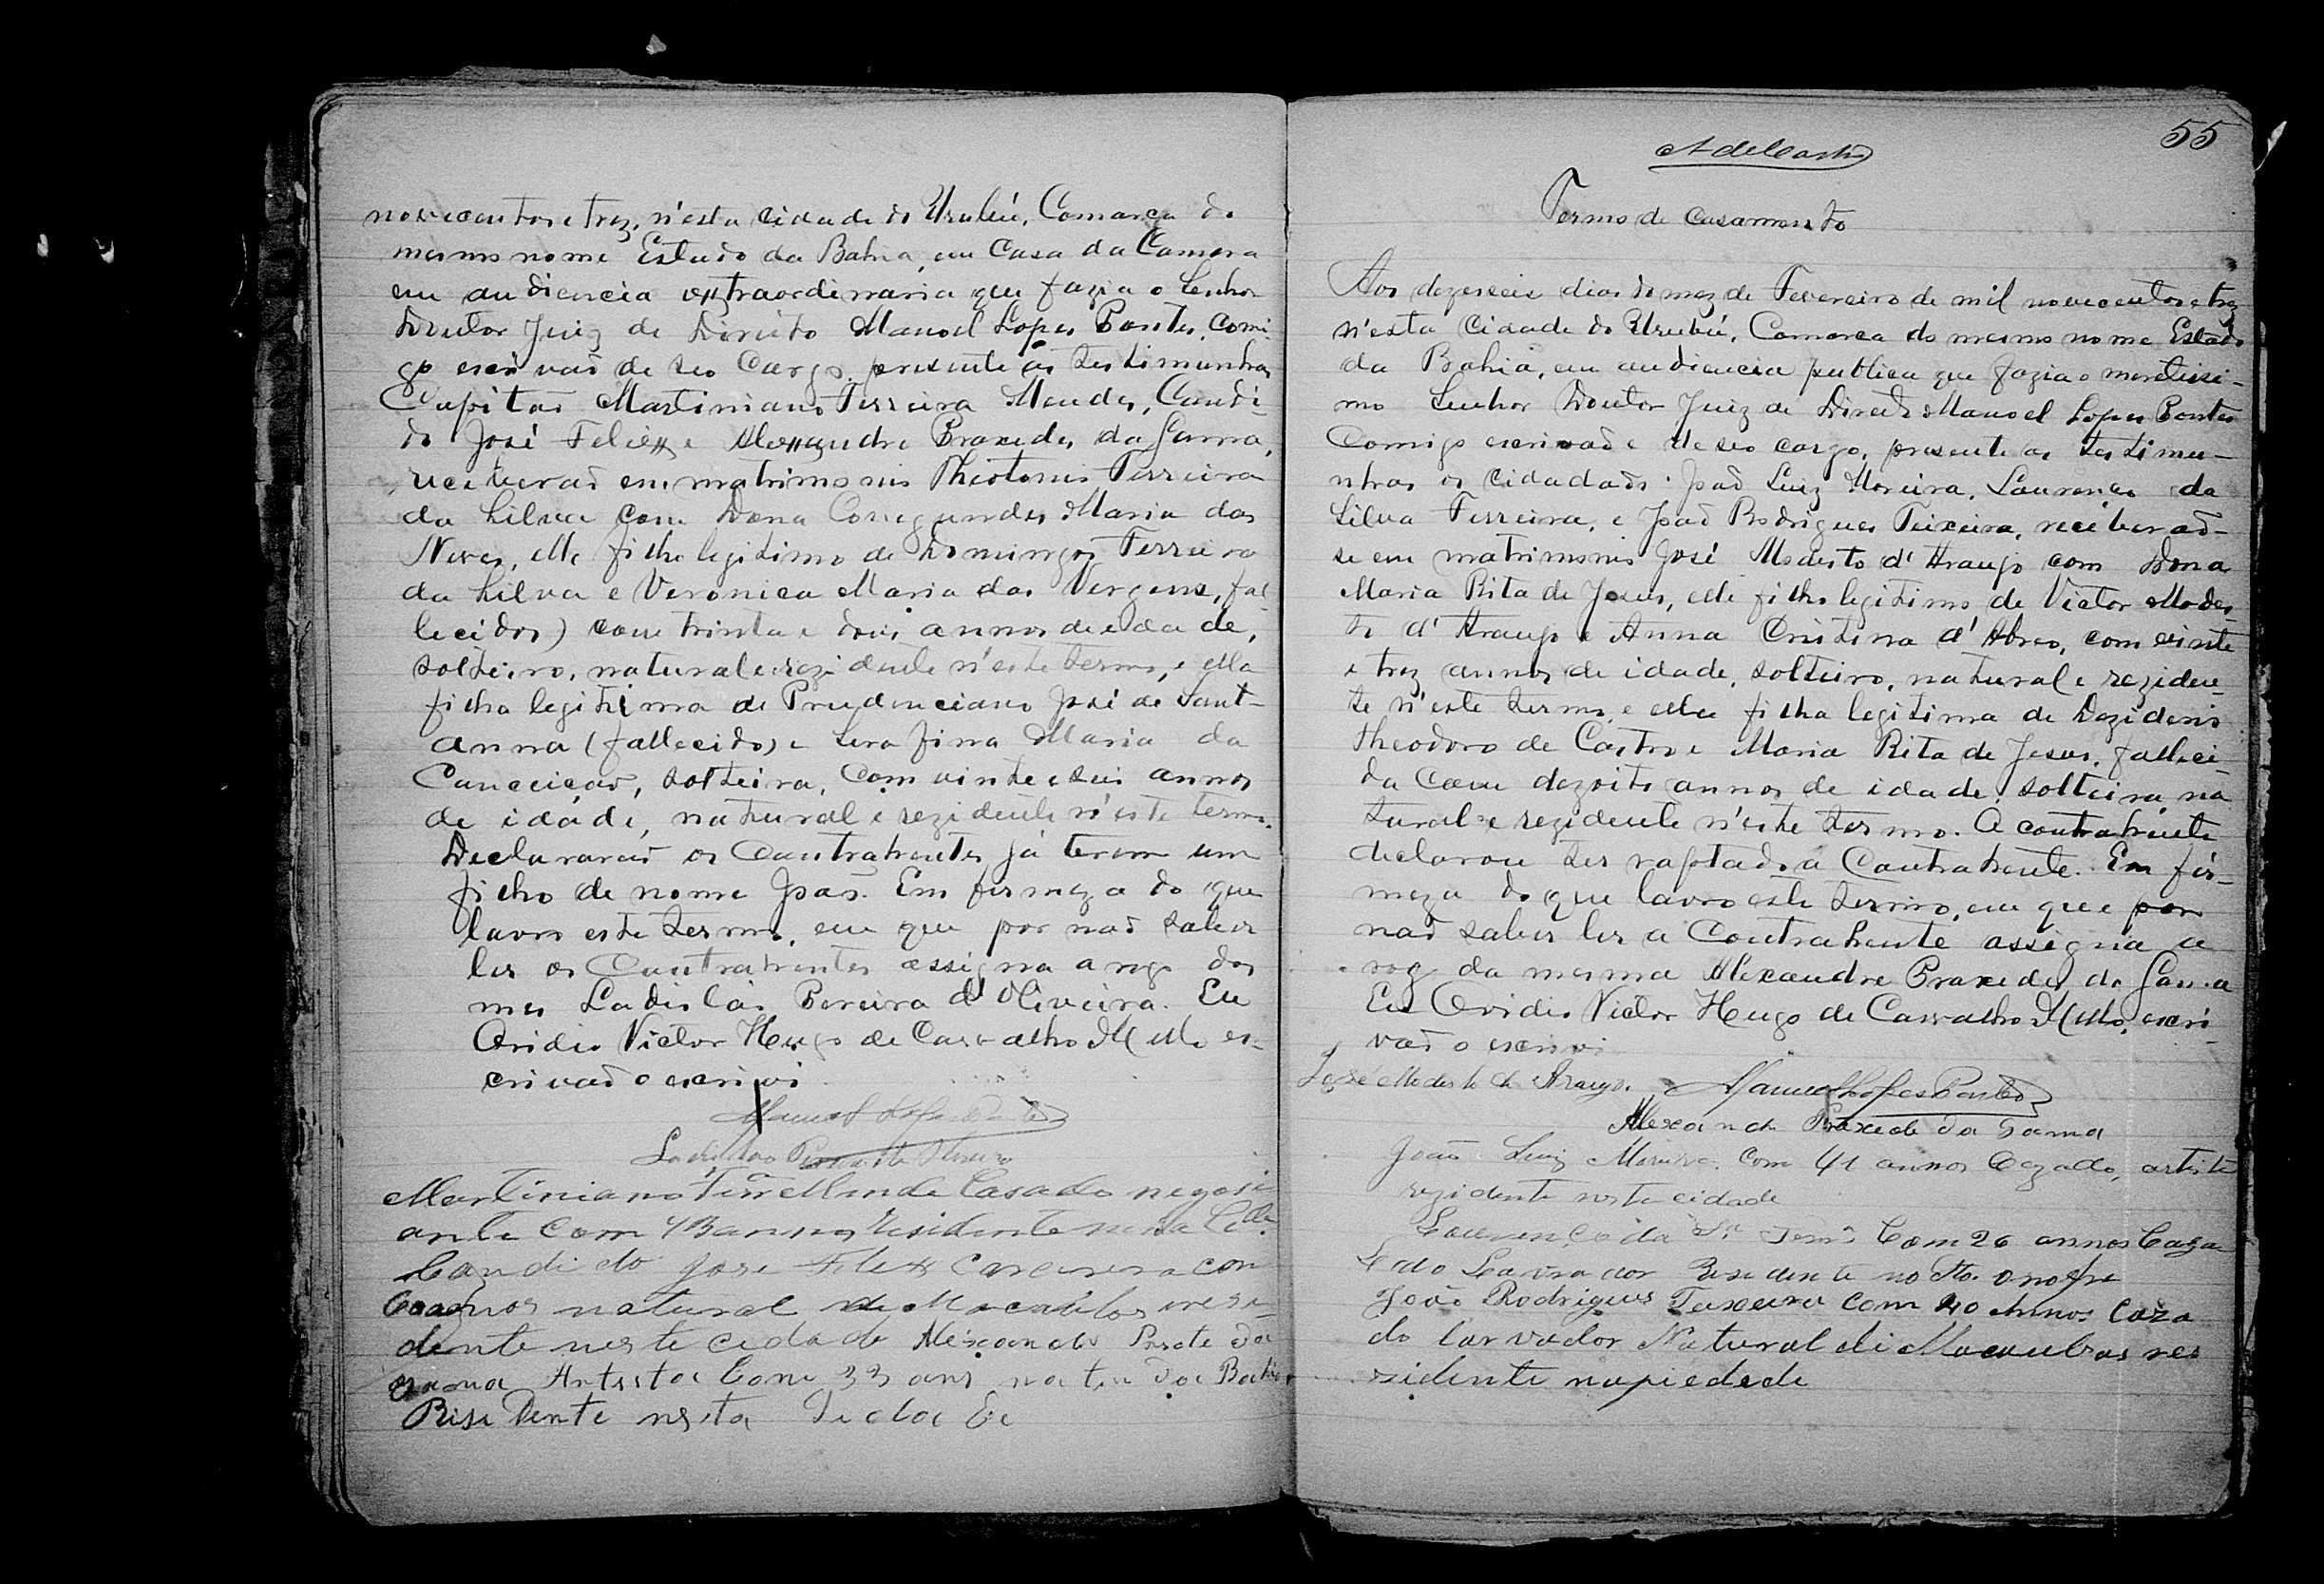 novecentos e trez, n'esta Cidade do Urubú, Comarca do
mesmo nome Estado da Bahia, em Casa da Camara
em audiencia extraordinaria que fazia o Senhor
Doutor Juiz de Direito Manoel Lopes Pontes, comi-
go escrivaõ de seo Cargo, presente as testimunhas
Capitaõ Martiniano Ferreira Mendes, Candi-
do José Felix e Alexandre Praxedes da Gama,
receberaõ em matrimonio Theotonio Ferreira
da Silva com Dona Conegundes Maria das
Neves, elle filho legitimo de Domingos Ferreira
da Silva e Veronica Maria das Virgens, fal-
lecidos) com trinta e dois annos de edade,
solteiro, natural e rezidente n'este termo, e ella
filha legitima de Prudenciano José de Sant-
anna (fallecido) e Serafina Maria da
Conceicaõ, solteira, com vinte e seis annos
de idade, natural e rezidente n'este termo.
Declararaõ os Contrahentes já terem um
filho de nome Joaõ. Em firmeza do que
lavro este termo, em que por naõ saber
ler os Contrahentes assigna a rogo dos
mes Ladisláo Pereira d'Oliveira. Eu
Ovidio Victor Hugo de Carvalho Mello es-
crivaõ o escrivi
Manoel Lopes Pontes
Ladisláo Pereira de Oliveira
Martiniano Ferra Mende Casado negosi
ante com annos Residente nesta Cide
Candido Jose Felix com
annos natural de Macaubos iresi-
dente neste cidade Alexandre da
gama Artista Com 33 ans da Bahia
Risidente nesta
55
A de Castro
Termo de Casamento
Aos dezeseis dias do mez de Fevereiro de mil novecentos e trez
n'esta Cidade do Urubú, Comarca do mesmo nome Estado
da Bahia, em audiencia publica que fazia o meretissi-
mo Senhor Doutor Juiz de Direito Manoel Lopes Pontes
Comigo escrivaõ e de seo cargo, presente as testimu-
nhas os cidadaõs Joaõ Luiz Moreira, Lourenço da
Silva Ferreira, e Joaõ Rodrigues Teixeira, receberaõ-
se em matrimonio José Modesto d'Araujo com Dona
Maria Rita de Jesus, elle filho legitimo de Victor Modes-
to d'Araujo e Anna Cristina d'Abreo, com vinte
e trez annos de idade, solteiro, natural e reziden-
te n'este termo, e ella filha legitima de Deziderio
Theodoro de Castro e Maria Rita de Jesus, falleci-
da com dezoito annos de idade, solteira, na
tural e rezidente n'este termo. O contrahente
declarou ter raptado a Contrahente. Em fir-
meza do que lavro este termo, em que por
naõ saber ler a Contrahente assigna a
rogo da mesma Alexandre Praxedes da Gama
Eu Ovidio Victor Hugo de Carvalho Mello, escri
vaõ o escrivi
José Modesto de Araujo. Manoel Lopes Pontes
Alexandre Praxede da Gama
João Luiz Moreira Com 41 annos Cazado, artiste
rezidente nesta cidade
Lourenço da Sa Com 26 annos Caza
do Lavrador Residente no
João Rodrigues Teixeira Com 40 Annos Caza
do larvador Natural di Macaubas res
zidente na piedade